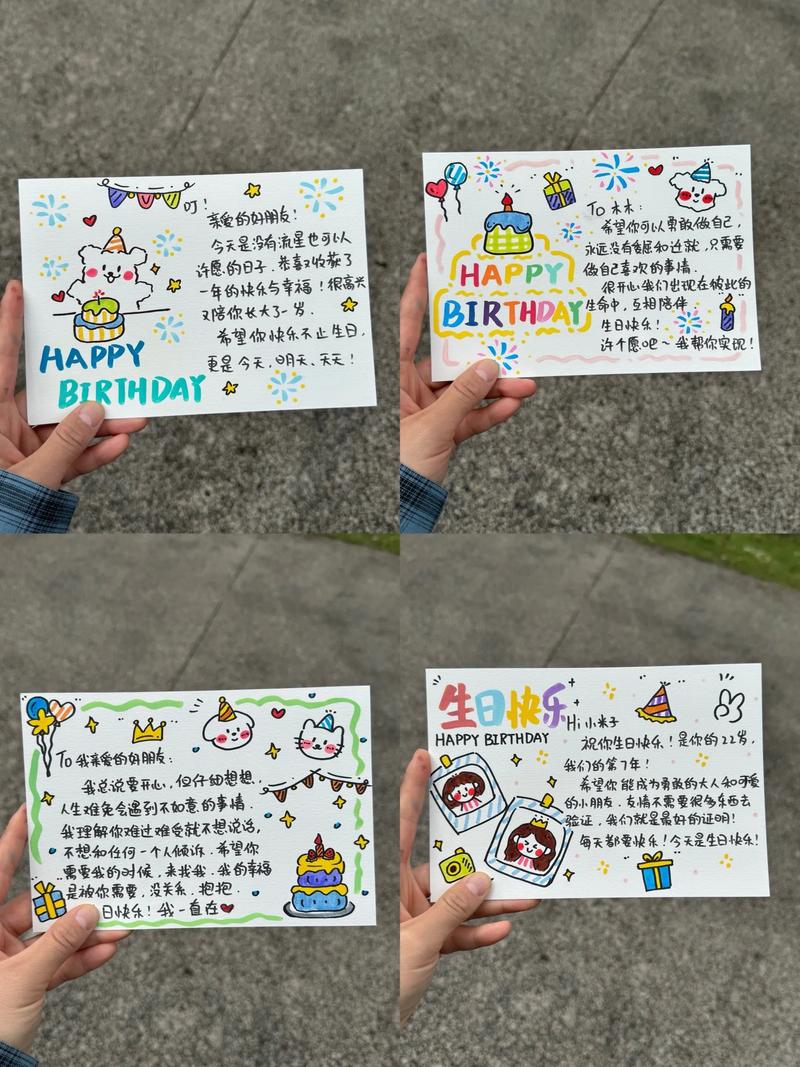 叮!
亲爱的好朋友!
今天是没有流星也可以
许愿的日子.恭喜又收获了
一年的快乐与幸福!很高兴
又陪你长大了一岁.
希望你快乐不止生日,
更是今天、明天、天天!
HAPPY
BIRTHDAY
To 木木:
希望你可以勇敢做自己,
永远没有委屈和迁就,只需要
做自己喜欢的事情.
很开心我们出现在彼此的
生命中,互相陪伴
生日快乐!
许个愿吧~我帮你实现!
HAPPY
BIRTHDAY
To 我亲爱的好朋友:
我总说要开心,但仔细想想,
人生难免会遇到不如意的事情.
我理解你难过难受就不想说话,
不想和任何一个人倾诉.希望你
需要我的时候,来找我.我的幸福
是被你需要,没关系.抱抱.
日快乐!我一直在
生日快乐
HAPPY BIRTHDAY
Hi 小米子
祝你生日快乐!是你的22岁,
我们的第7年!
希望你能成为勇敢的大人和可爱
的小朋友.友情不需要很多东西去
验证,我们就是最好的证明!
每天都要快乐!今天是生日快乐!